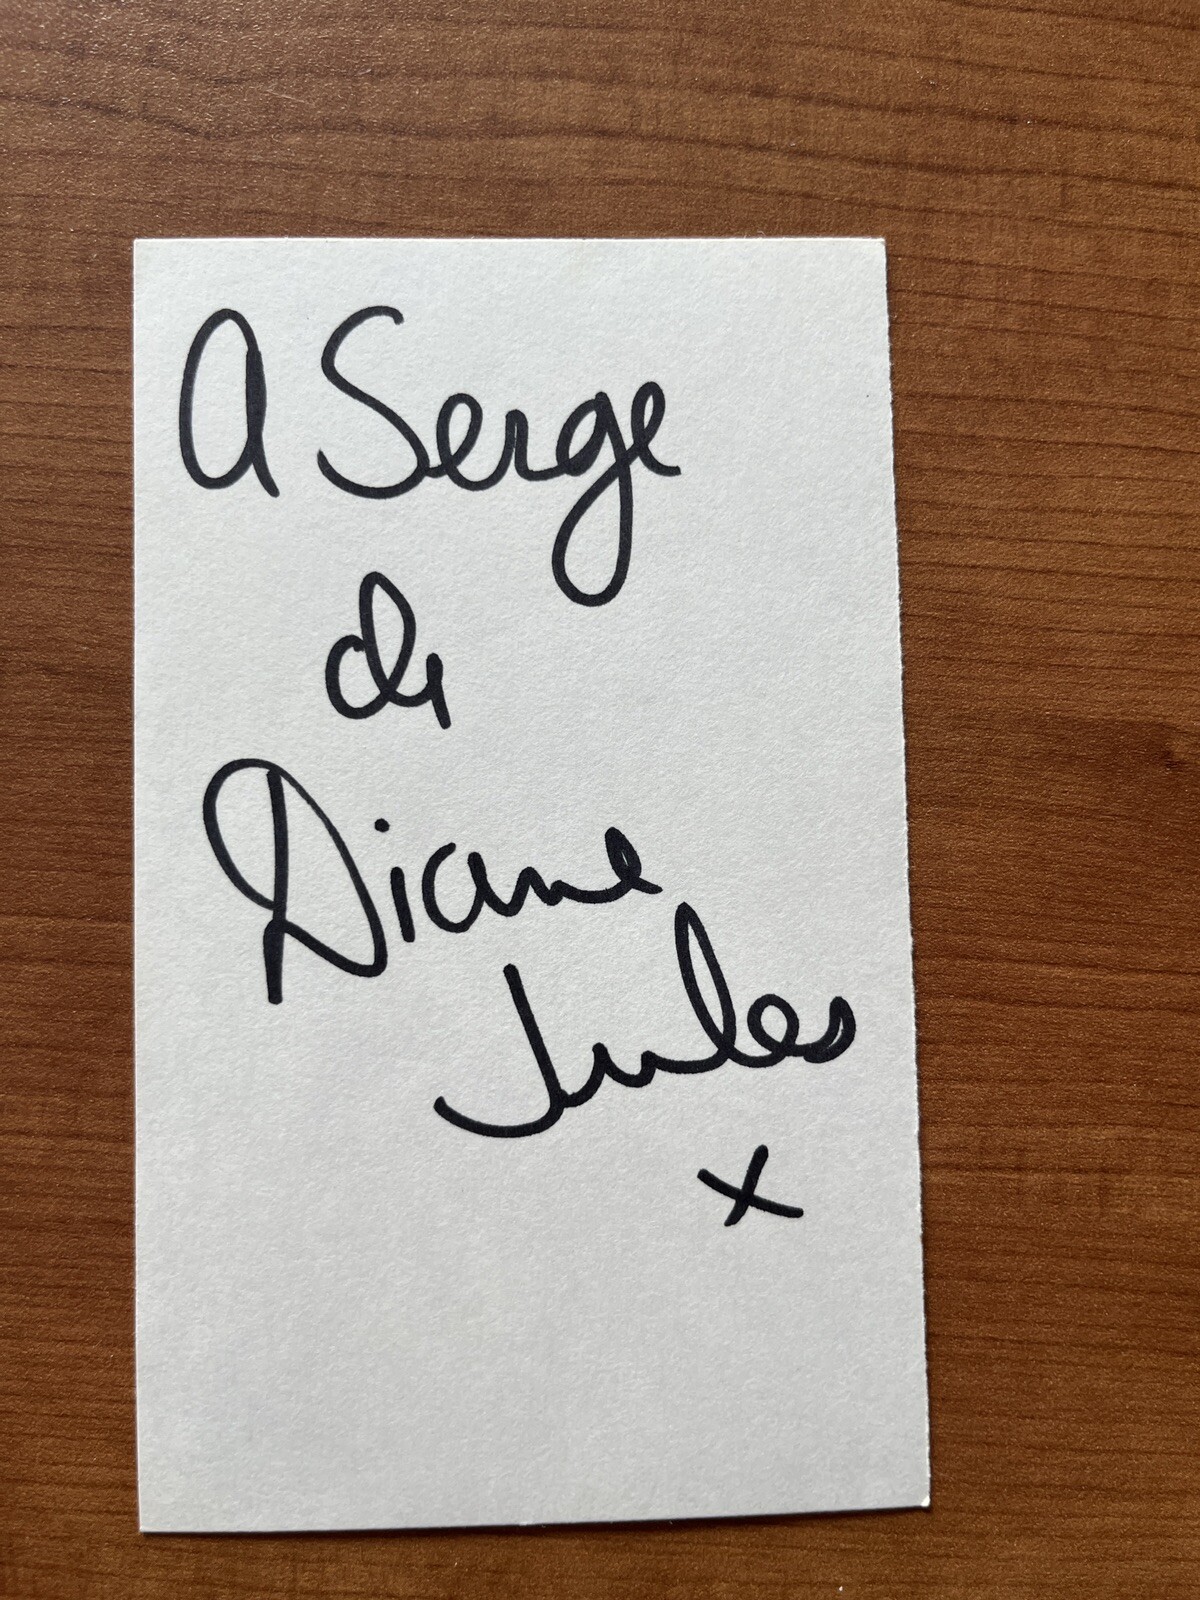 A Serge
de
Diane
Jules
x